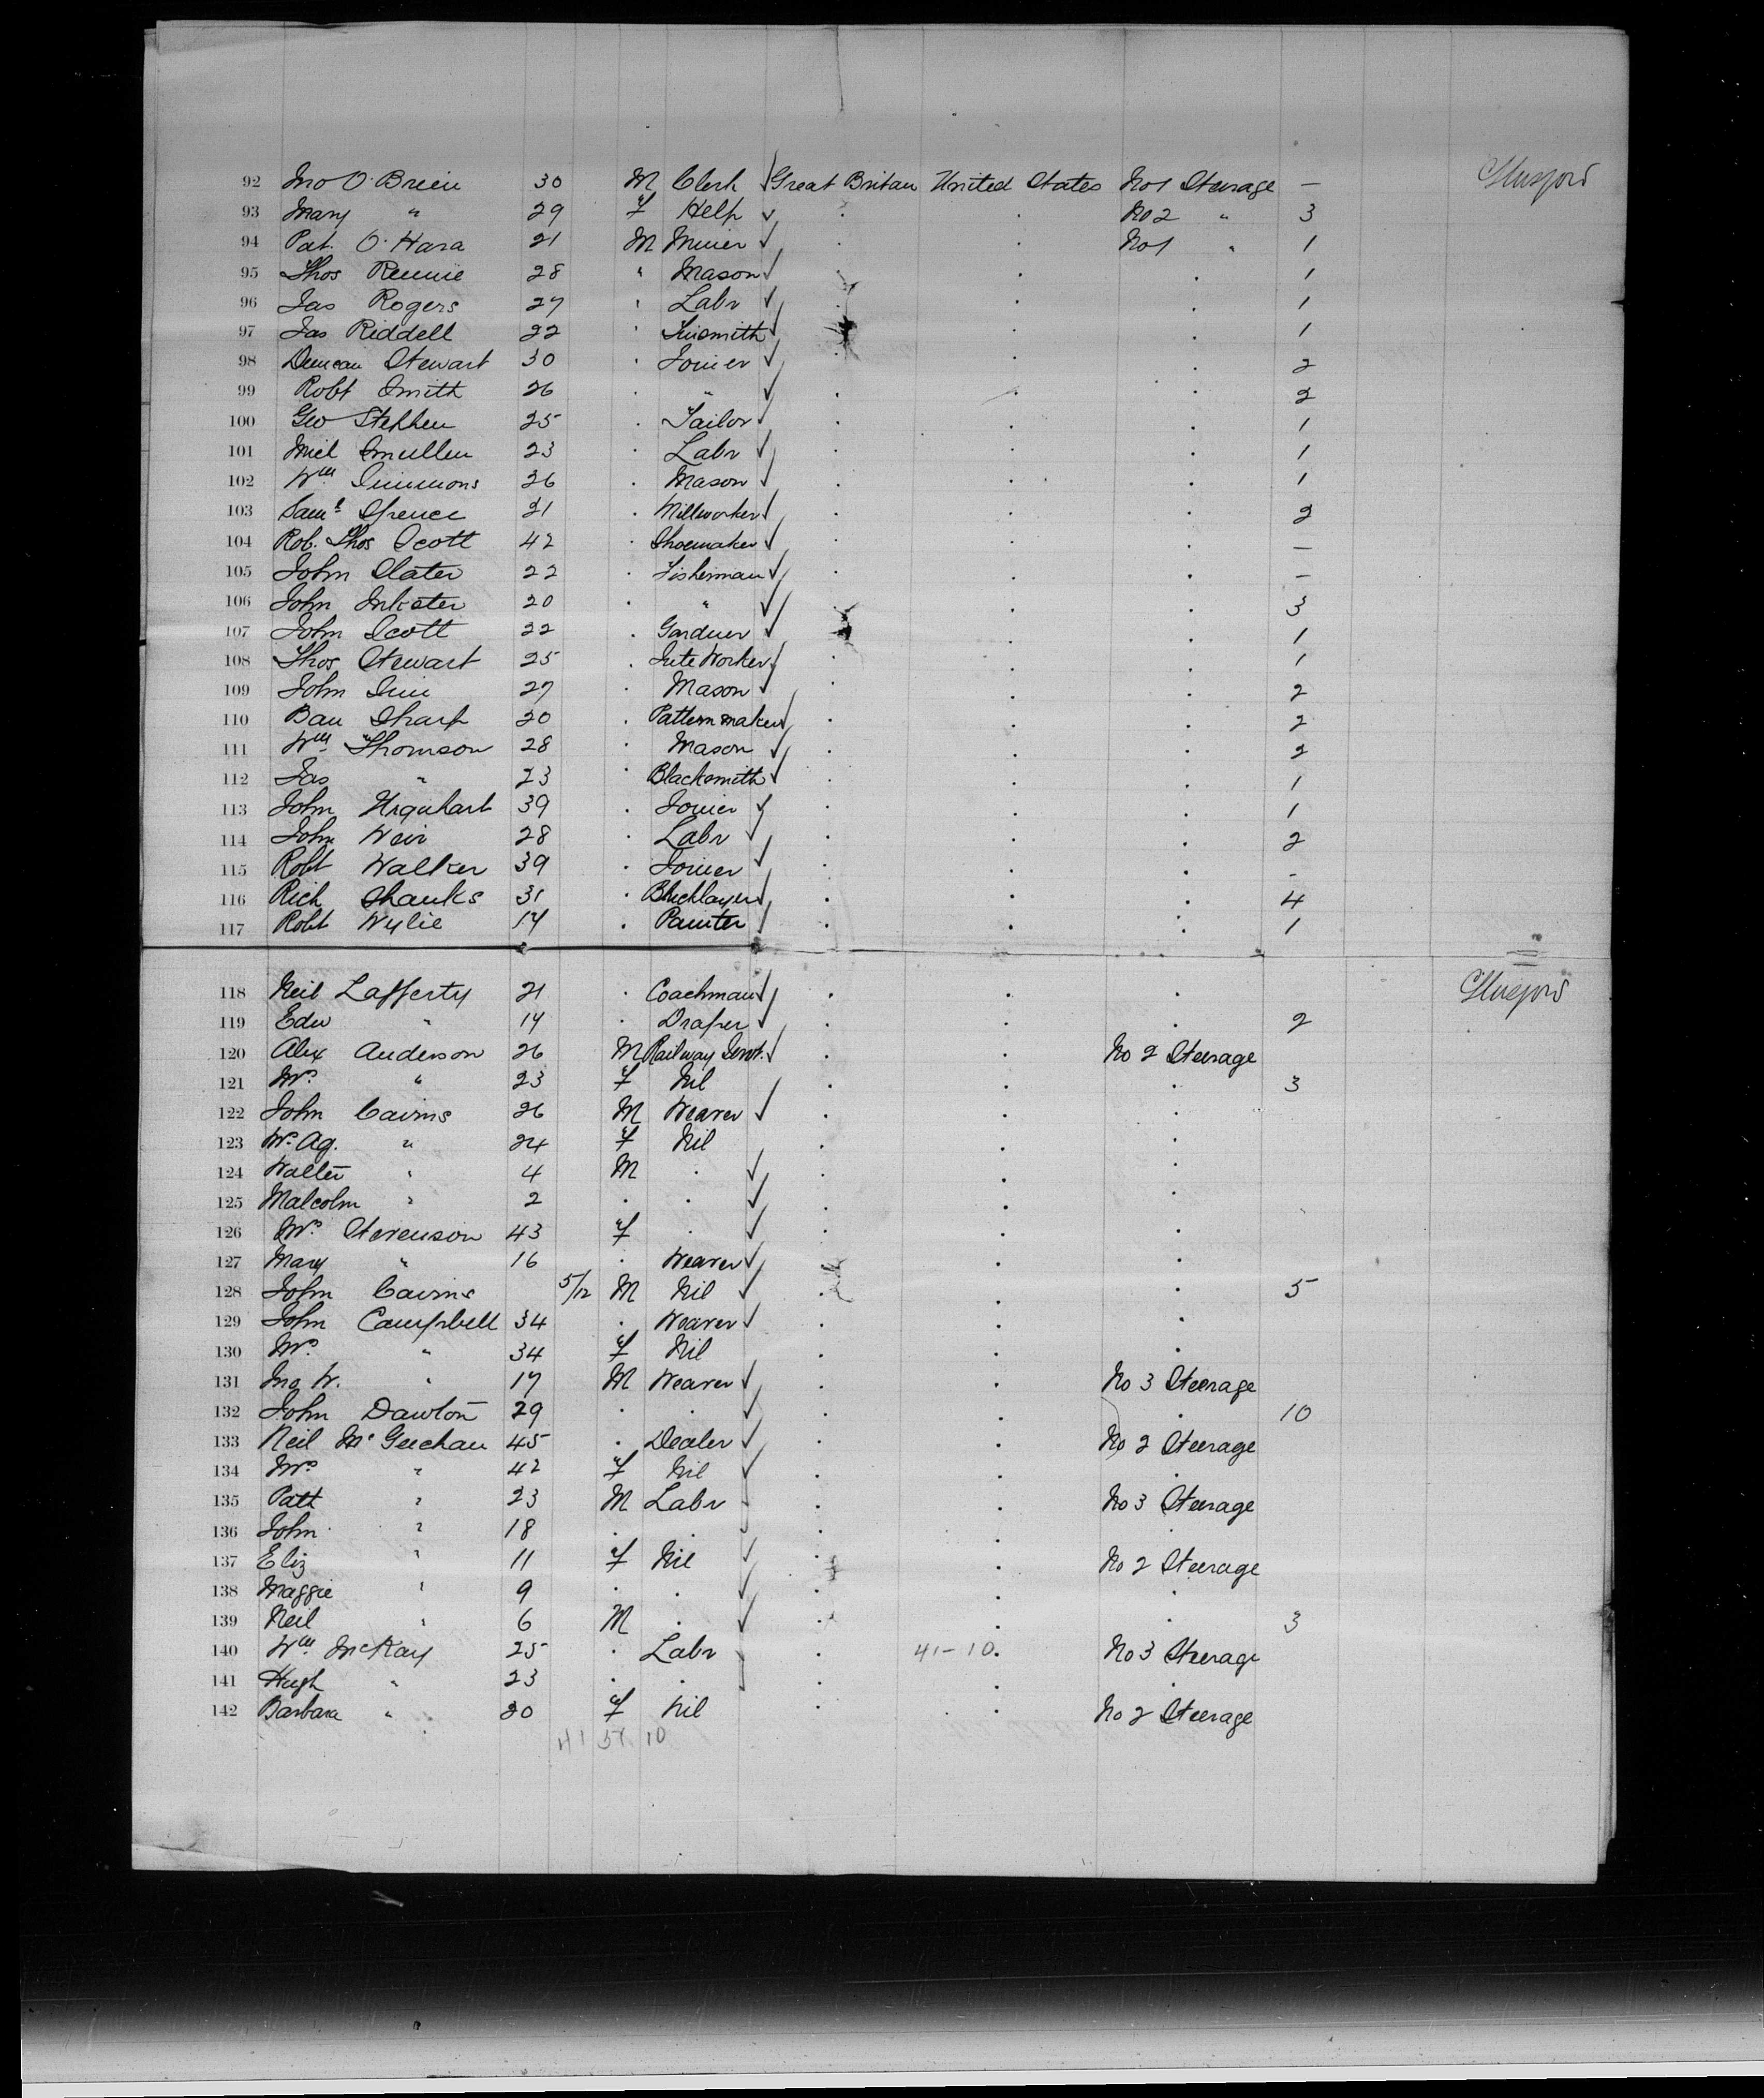 92 Jno O'Brien 30 M Clerk Great Britan United States No 1 Steerage — Glasgow
93 Mary " 29 F Help . . No 2 " 3
94 Pat. O'Hara 21 M Miner . . No 1 " 1
95 Thos Rennie 28 " Mason . . . 1
96 Jas Rogers 27 " Labr . . . 1
97 Jas Riddell 22 " Tinsmith . . . 1
98 Duncan Stewart 30 . Joiner . . . 2
99 Robt Smith 26 . " . . . 2
100 Geo Stephen 25 . Tailor . . . 1
101 Micl Smullen 23 . Labr . . . 1
102 Wm Simmons 26 . Mason . . . 1
103 Saml Spence 21 . Millworker . . . 2
104 Rob. Thos Scott 42 . Shoemaker . . . —
105 John Slater 22 . Fisherman . . . —
106 John Inkster 20 . " . . . 3
107 John Scott 22 . Gardner . . . 1
108 Thos Stewart 25 . Jute Worker . . . 1
109 John Sim 27 . Mason . . . 2
110 Ban Sharp 20 . Pattern maker . . . 2
111 Wm Thomson 28 . Mason . . . 2
112 Jas " 23 . Blacksmith . . . 1
113 John Urquhart 39 . Joiner . . . 1
114 John Weir 28 . Labr . . . 2
115 Robt Walker 39 . Joiner . . . -
116 Rich Shanks 31 . Bricklayer . . . 4
117 Robt Wylie 19 . Painter . . . 1
118 Neil Lafferty 21 . Coachman . . . Glasgow
119 Edw " 19 . Draper . . . 2
120 Alex Anderson 26 M Railway Servt. . . No 2 Steerage
121 Mrs " 23 F Nil . . . 3
122 John Cairns 26 M Weaver . . .
123 Mrs Ag. " 24 F Nil . . .
124 Walter " 4 M . . . .
125 Malcolm " 2 . . . . .
126 Mrs Stevenson 43 F . . . .
127 Mary " 16 . Weaver . . .
128 John Cairns 5/12 M Nil . . . 5
129 John Campbell 34 . Weaver . . .
130 Mrs " 34 F Nil . . .
131 Jno W. " 17 M Weaver . . No 3 Steerage
132 John Dawton 29 . . . . . 10
133 Neil McGeechan 45 . Dealer . . No 2 Steerage
134 Mrs " 42 F Nil . . .
135 Patt " 23 M Labr . . No 3 Steerage
136 John " 18 . . . . .
137 Eliz " 11 F Nil . . No 2 Steerage
138 Maggie " 9 . . . . .
139 Neil " 6 M . . . . 3
140 Wm McKay 25 . Labr . 41-10. No 3 Steerage
141 Hugh " 23 . . . . .
142 Barbara " 20 F Nil . . No 2 Steerage